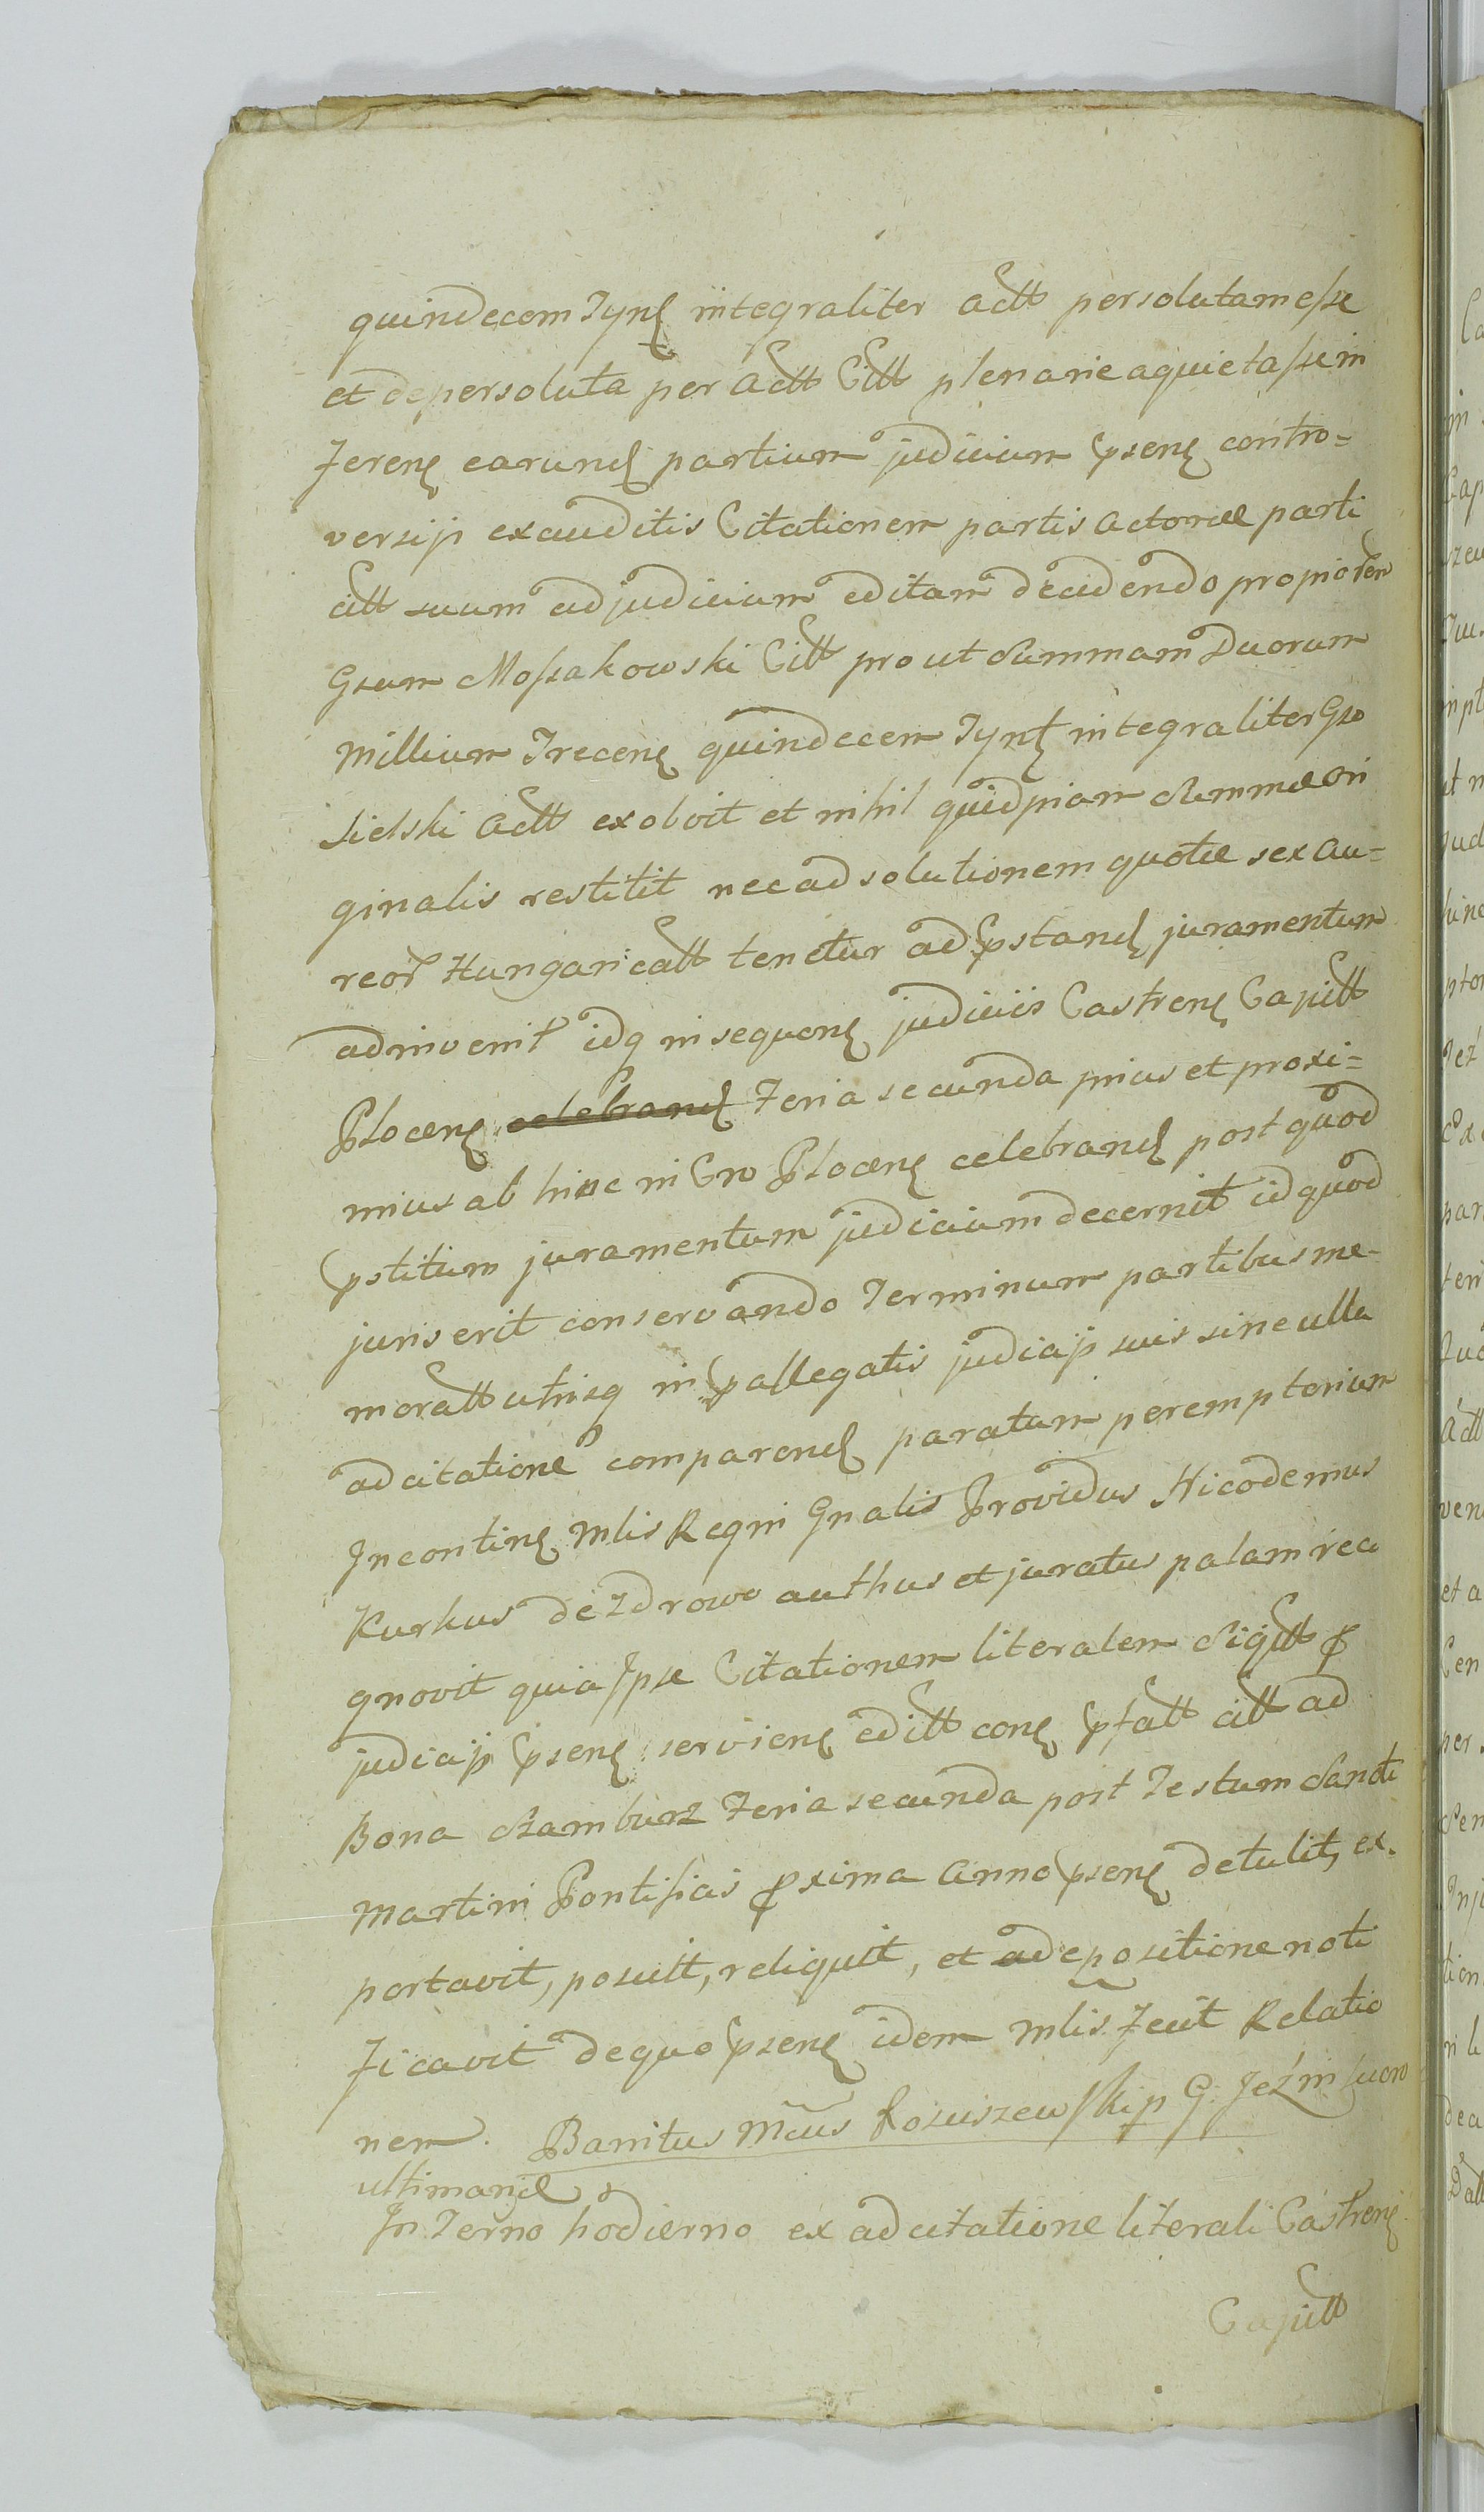 quindecem Tynf integraliter Actt persolutam esse
et de persoluta per Actt Citt plenarie aquietasse in
ferenẽ earund partium judicium psenẽ contro=
versijs exauditis Citationem partis Actoreæ parti
citt suum ad judicium editam decidendo propiorem
Gsum Mossakowski Citt prout Summam Duorum
Millium Trecenẽ quindecem Tynf integraliter Gso
Sielski Actt exolvit et nihil quidpiam Summæ Ori
ginalis restitit nec ad solutionem quotæ sex Au=
reor Hungaricatt tenetur ad pstand juramentum
adinvenit idq in sequenẽ judiciis Castrenẽ Capitt
Plocenẽ celebrand Feria secunda prius et proxi=
mius ab hinc in Cro Plocenẽ celebrand post quod
pstitum juramentum judicium decernit id quod
juris erit conservando Terminum partibus me-
moratt utrisq in pallegatis judicijs suis sine ulla
adcitatione comparend paratum peremptorium
Incontinẽ Mlis Regni Gnalis Providus Nicodemus
Kurkus de Zdrowo authus et juratus palam reco
gnovit quia Ipse Citationem literalem Sigitt p
judicijs psenẽ servienẽ editt conẽ pfatt citt ad
Bona Szamburz Feria secunda post Festum Sancti
Martini Pontificis pxima Anno psenẽ detulit, ex-
portavit, posuitt, reliquit, et ad epositione noti
ficavit de quo psenẽ idem Mlis fecit Relatio
nem. Banitus Mcus Kosuszewski p G. Jeż in lucro
ultimand
In Terno hodierno ex adcitatione literali Castrenẽ
Capitt